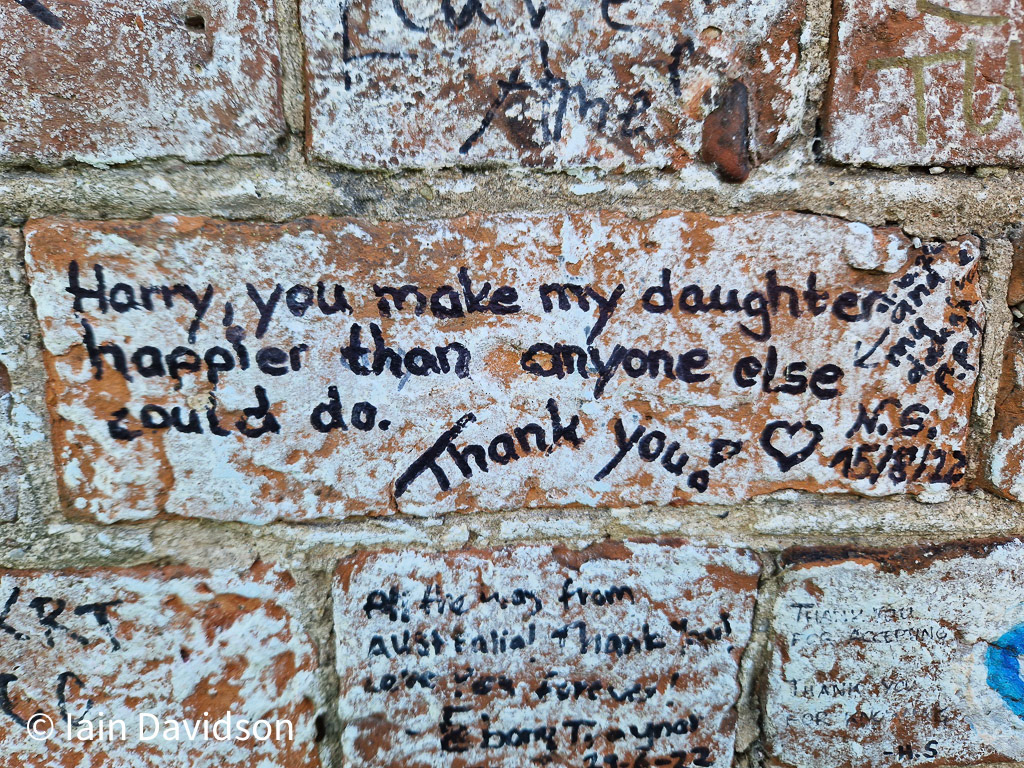 time
Harry, you make my daughter
happier than anyone else
could do.
Thank you! ♡
and
my
N.S.
15/8/22
KRT
All the way from
Australia! Thank You!
Love You Forever!
29-6-22
THANK YOU
FOR ACCEPTING
THANK YOU
FOR
-H.S
© Iain Davidson